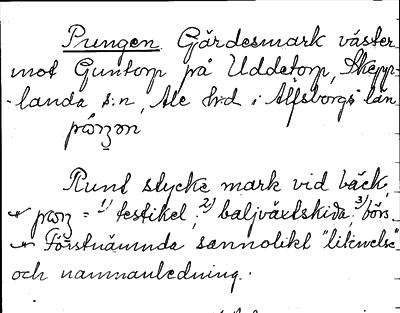 Pungen. Gärdesmark väster
mot Guntorp på Uddetorp, Skepp-
landa s:n, Ale h:d i Älfsborgs län
Runt stycke mark vid bäck,
= 1) testikel, 2) baljväxtskida, 3) börs
Förstnämnda sannolikl "liknelse"
och namnanledning.